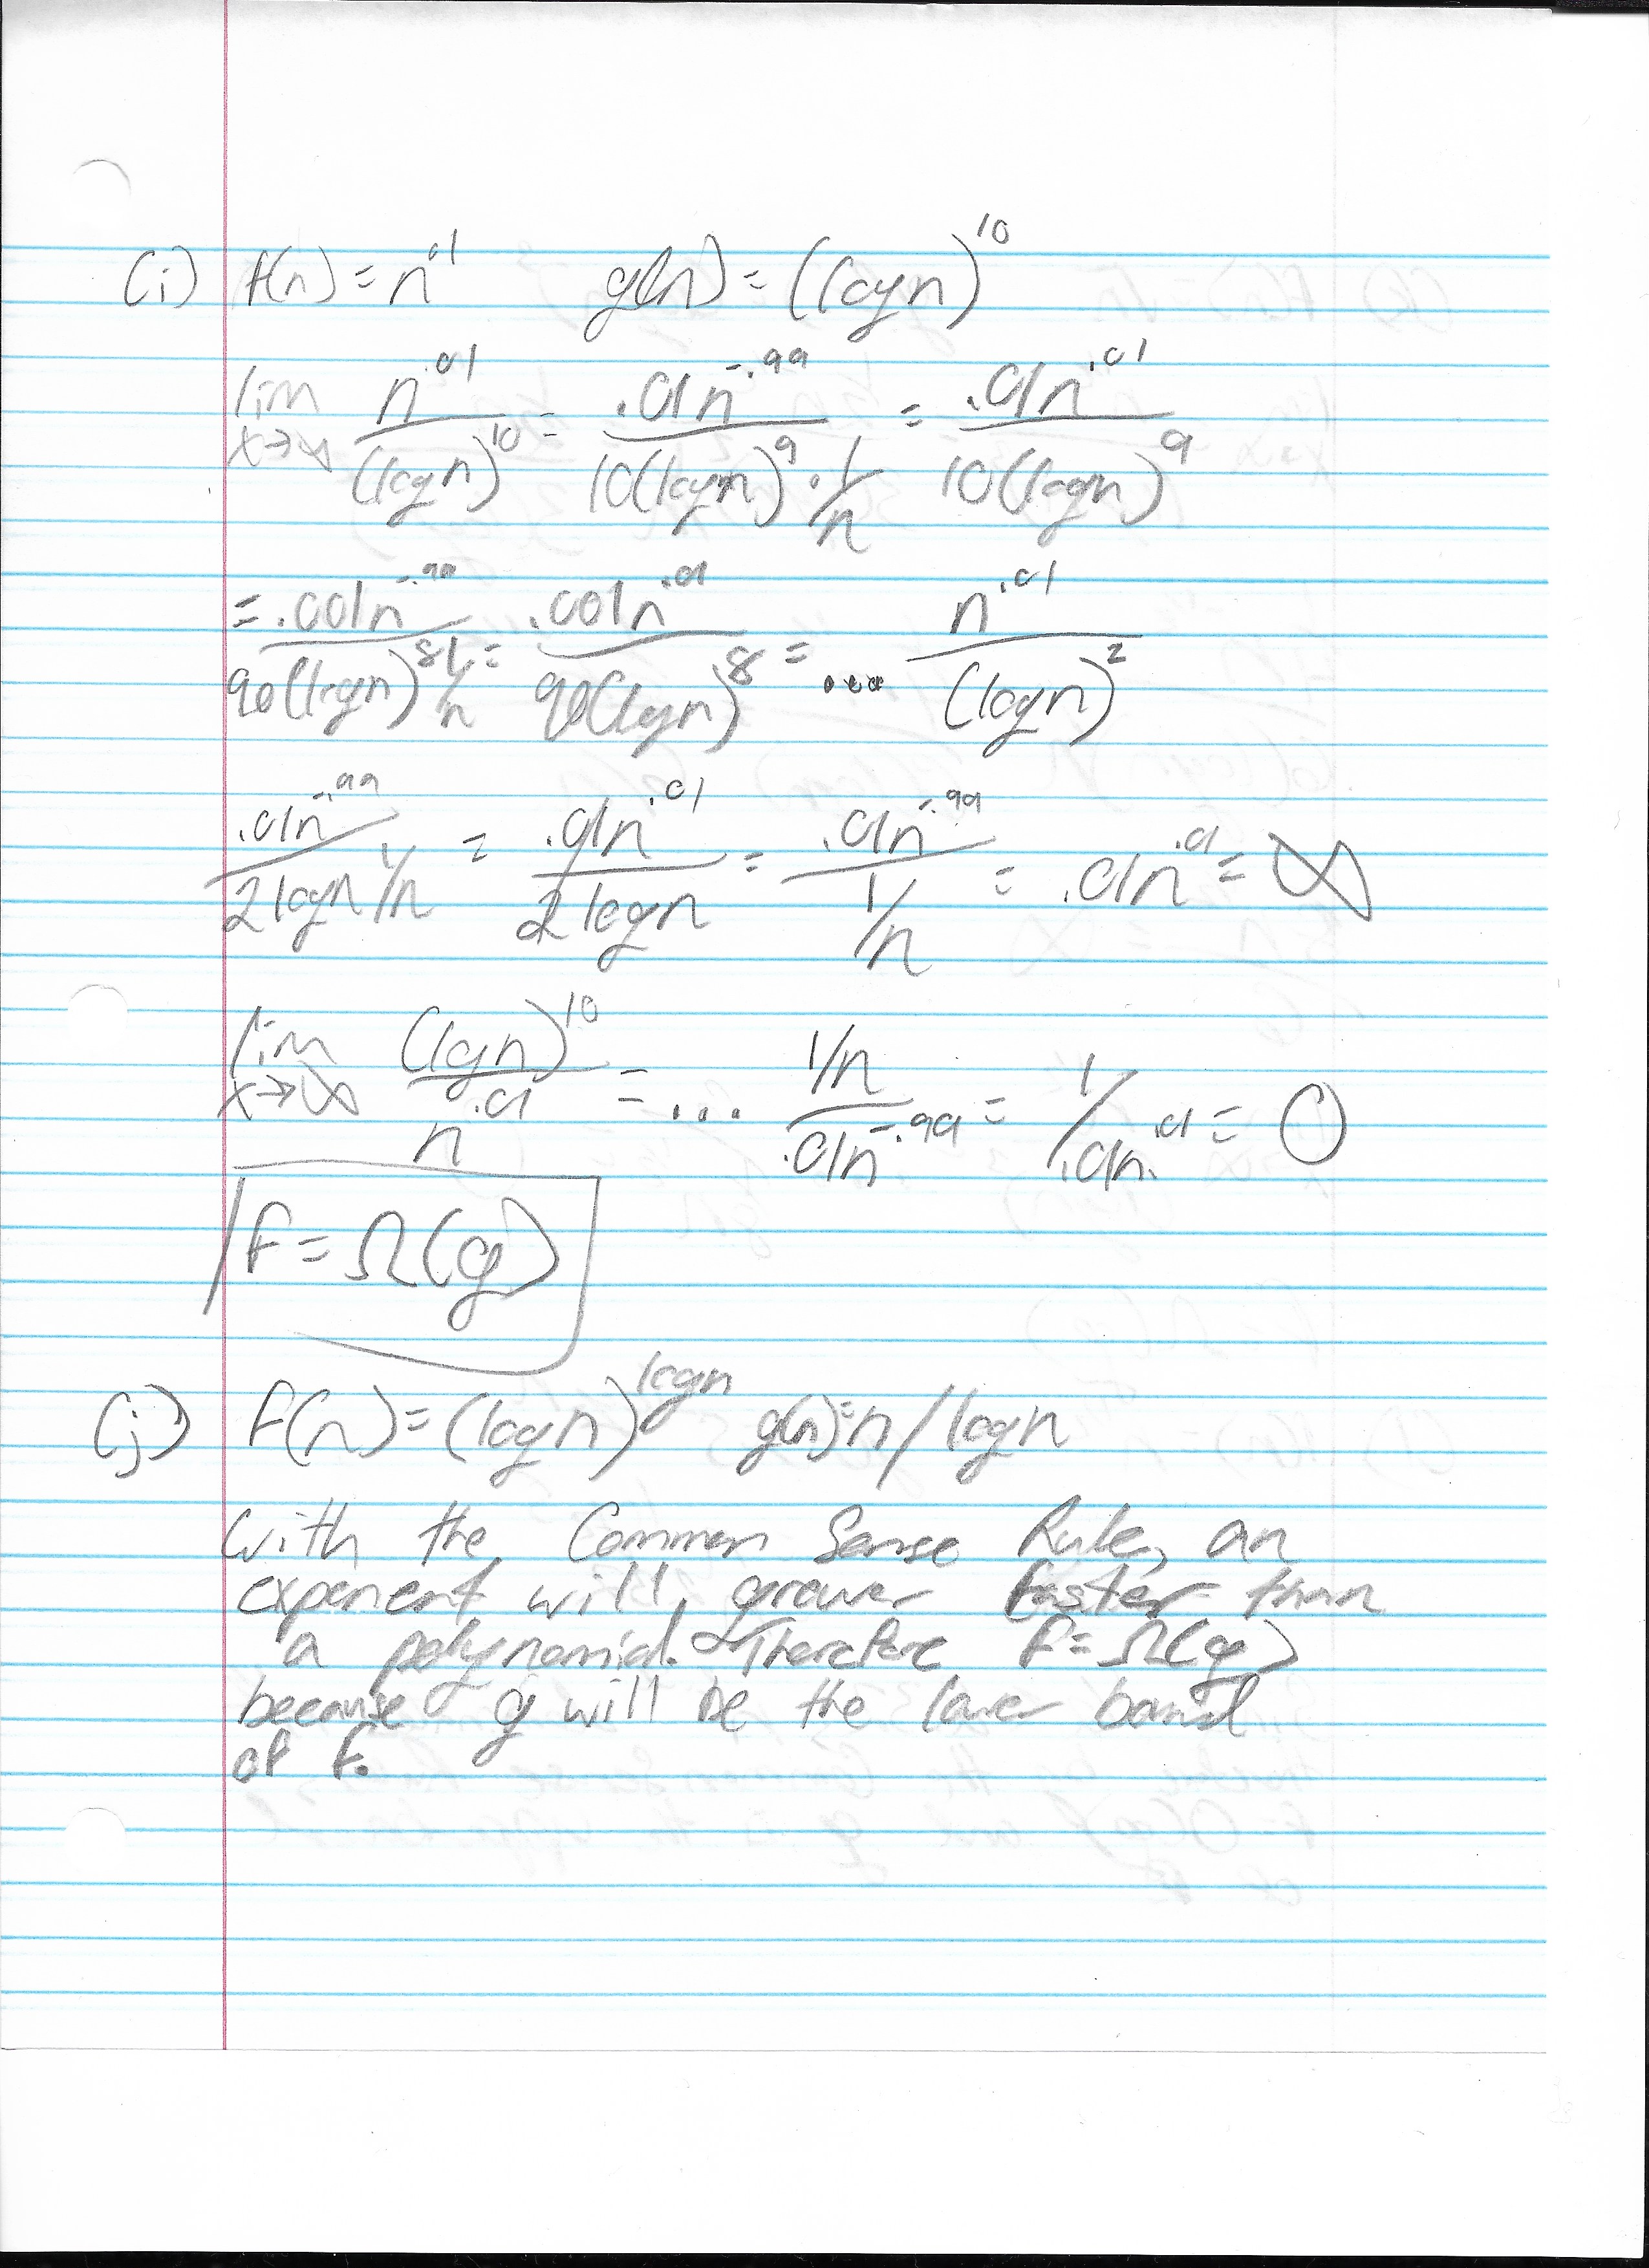 (i) f(n) = n^.1 g(n) = (log n)^10
lim x→∞ n^.01 / (log n)^10 = .01n^-.99 / 10(log n)^9 · 1/n = .01n^.01 / 10(log n)^9
= .001n^-.99 / 90(log n)^8 1/n = .001n^.01 / 90(log n)^8 = ... n^.01 / (log n)^2
.01n^-.99 / 2 log n 1/n = .01n^.01 / 2 log n = .01n^-.99 / 1/n = .01n^.01 = ∞
lim x→∞ (log n)^10 / n^.01 = ... 1/n / .01n^-.99 = 1/.01n^.01 = 0
f = Ω(g)
(j) f(n) = (log n)^log n g(n) = n / log n
With the Common Sense Rule, an
exponent will grower faster than
a polynomial. Therefore f = Ω(g)
because g will be the lower bound
of f.